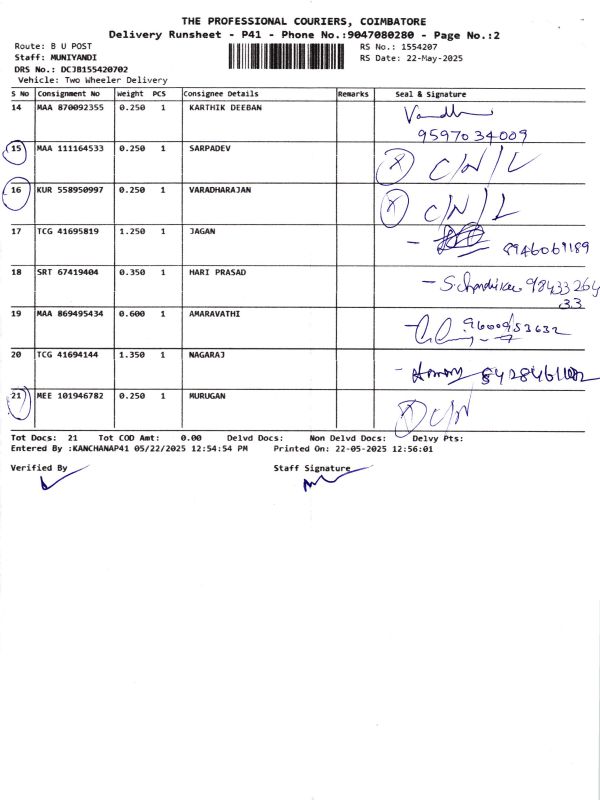 THE PROFESSIONAL COURIERS, COIMBATORE
Delivery Runsheet - P41 - Phone No.:9047080280 - Page No.:2
Route: B U POST
RS No.: 1554207
Staff: MUNIYANDI
RS Date: 22-May-2025
DRS No.: DCJB155420702
Vehicle: Two Wheeler Delivery
S No Consignment No Weight PCS Consignee Details Remarks Seal & Signature
14 MAA 870092355 0.250 1 KARTHIK DEEBAN
9597034009
15 MAA 111164533 0.250 1 SARPADEV X C/N/L
16 KUR 558950997 0.250 1 VARADHARAJAN X C/N/L
17 TCG 41695819 1.250 1 JAGAN 8946069189
18 SRT 67419404 0.350 1 HARI PRASAD 98433264
33
19 MAA 869495434 0.600 1 AMARAVATHI 9600953632
20 TCG 41694144 1.350 1 NAGARAJ
21 MEE 101946782 0.250 1 MURUGAN X C/N
Tot Docs: 21 Tot COD Amt: 0.00 Delvd Docs: Non Delvd Docs: Delvy Pts:
Entered By :KANCHANAP41 05/22/2025 12:54:54 PM Printed On: 22-05-2025 12:56:01
Verified By Staff Signature